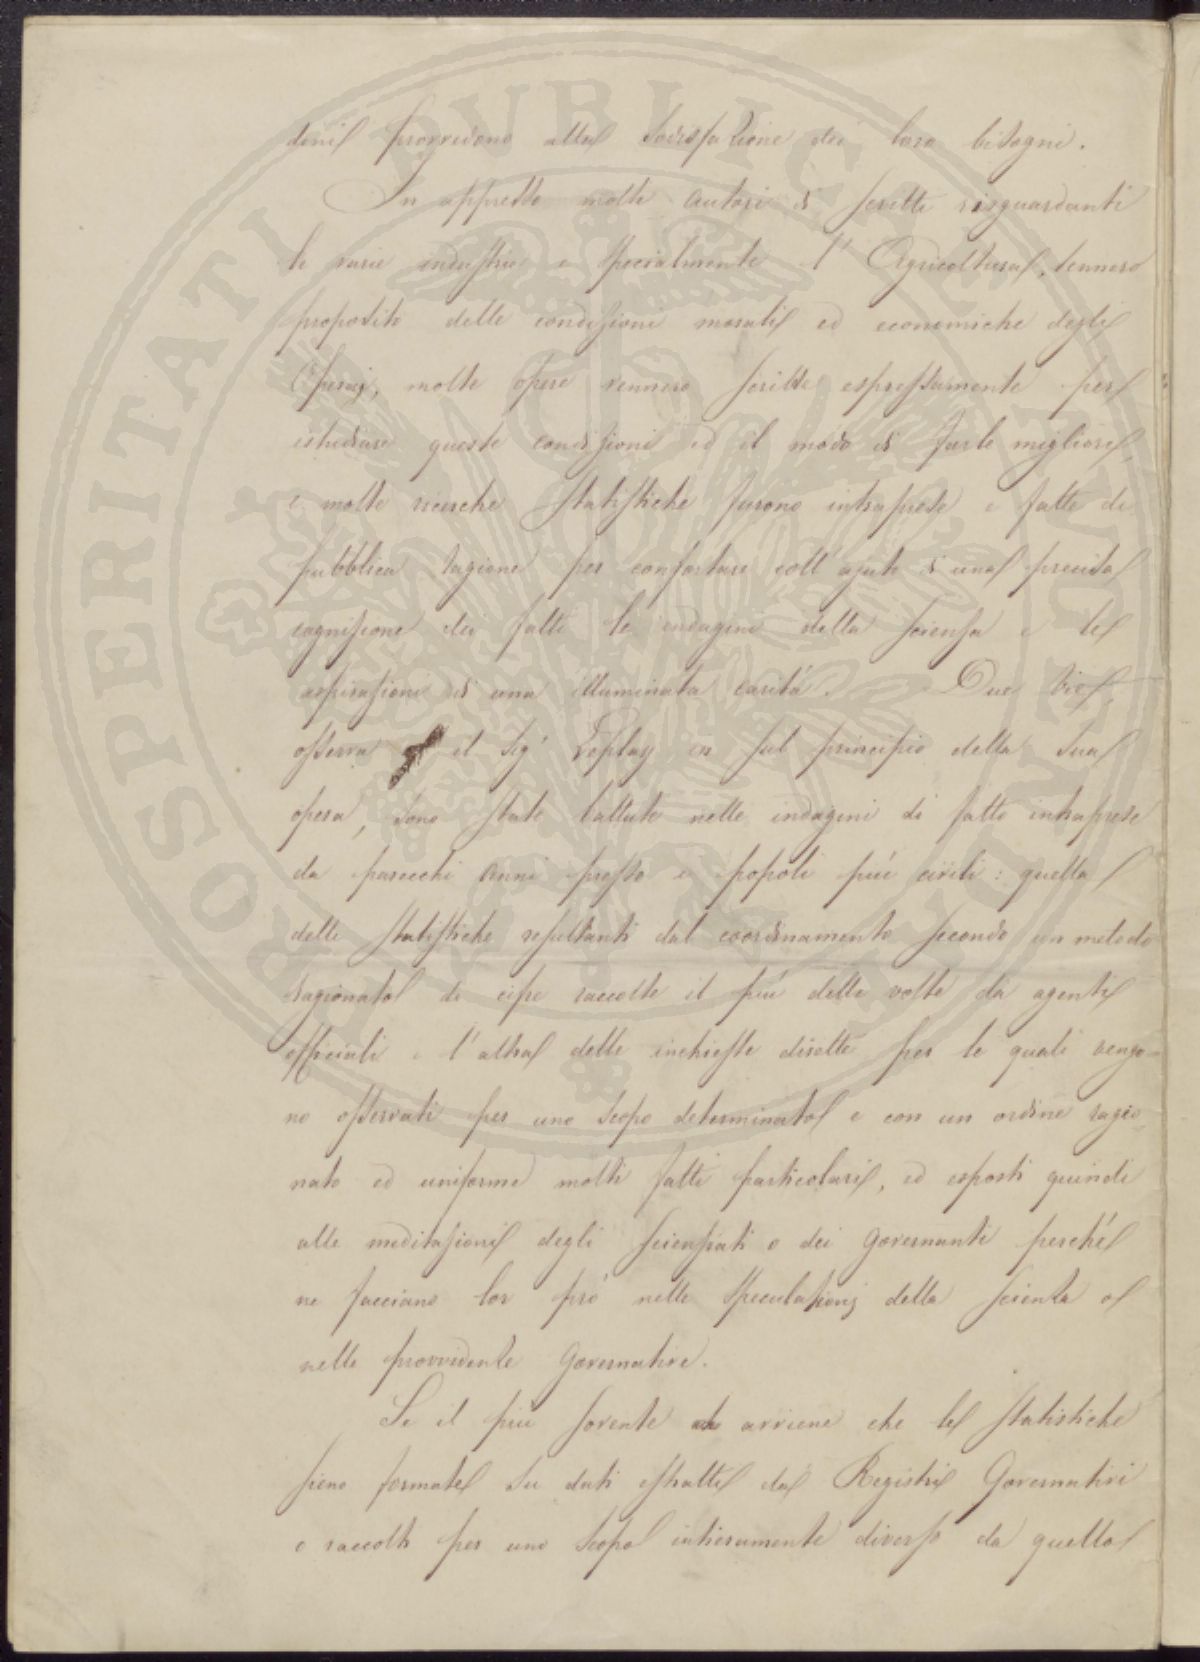 dini provvedono alla sodisfazione dei loro bisogni.
In appresso molti autori di scritti risguardanti
le varie industrie e specialmente l'Agricoltura, tennero
proposito delle condizioni morali ed economiche degli
Operaj, molte opere vennero scritte espressamente per
istudiare queste condizioni ed il modo di farle migliori,
e molte ricerche statistiche furono intraprese e fatte di
pubblica ragione per confortare coll'ajuto di una precisa
cognizione dei fatti le indagini della scienza e le
aspirazioni di una illuminata carità. Due vie,
osserva il Sigr Leplay in sul principio della sua
opera, sono state battute nelle indagini di fatto intraprese
da parecchi anni presso i popoli più civili: quella
delle statistiche resultanti dal coordinamento secondo un metodo
ragionato di cifre raccolte il più delle volte da agenti
officiali e l'altra delle inchieste dirette per le quali vengo-
no osservati per uno scopo determinato e con un ordine ragio-
nato ed uniforme molti fatti particolari, ed esposti quindi
alle meditazioni degli scienziati o dei governanti perché
ne facciano lor prò nelle speculazioni della scienza o
nelle provvidenze governative.
Se il più sovente avviene che le statistiche
sieno formate su dati estratti da Registri Governativi
e raccolti per uno scopo intieramente diverso da quello
PROSPERITATI PVBLICAE